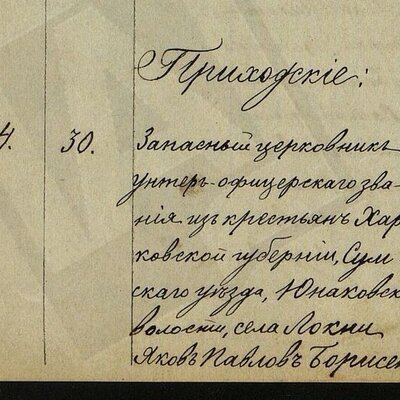 Приходскіе:
4. 30. Запасный церковникъ
унтеръ-офицерскаго зва-
нія изъ крестьянъ Хар
ковской губерніи, Сум
скаго уѣзда, Юнаковск
волости, села Локни
Яковъ Павловъ Борисен